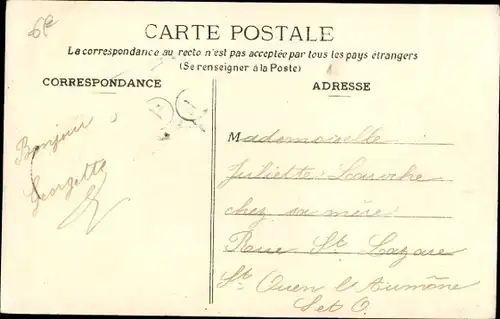 6e
CARTE POSTALE
La correspondance au recto n'est pas acceptée par tous les pays étrangers
(Se renseigner à la Poste)
CORRESPONDANCE
ADRESSE
Bonjour
Georgette
Mademoiselle
Juliette Laroche
chez sa mère
Rue St Lazare
St Ouen l'Aumône
S et O.